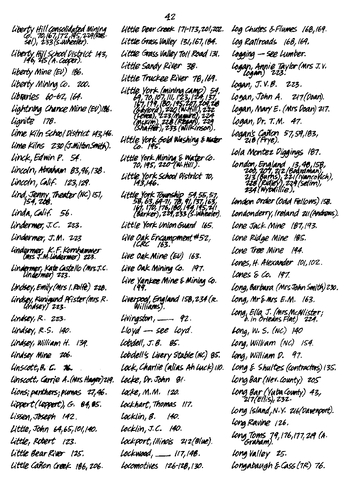 42
Liberty Hill Consolidated Mining
Liberty Hill School District 143,
146, (A. Cooper).
Liberty Mine (EV) 186.
Liberty Mining Co. 200.
Libraries 60-62, 164.
Lightning Chance Mine (EV) 186.
Lignite 178.
Lime Kiln School District 143, 146.
Lime Kilns 230 (J. Milton Smith).
Linck, Edwin P. 54.
Lincoln, Abraham 83, 96, 138.
Lincoln, Calif. 123, 129.
Lind, Jenny, Theater (NC) 151,
154, 208.
Linda, Calif. 56.
Lindermer, J.C. 223.
Lindermer, J.M. 223
Lindermer, K.F. Kornhammer
(Mrs J.M. Lindermer) 223.
Lindermer, Kate Costello (Mrs J.C.
Lindermer) 223.
Lindsey, Emily (Mrs I. Rolfe) 228.
Lindsey, Kunigund Pfister (Mrs R.
Lindsey) 223.
Lindsey, R. 223.
Lindsey, R.S. 140.
Lindsey, William H. 139.
Lindsey Mine 206.
Linscott, B.C. 76.
Linscott, Carrie A. (Mrs Hagen) 219.
Lions; panthers; Pumas 27, 46.
Lippert (Leppert), G. 84, 85.
Lissen, Joseph 142.
Little, John 64, 65, 101, 140.
Little, Robert 123.
Little Bear River 125.
Little Cañon Creek 186, 206.
Little Deer Creek 171-173, 201, 202.
Little Grass Valley 131, 157, 184.
Little Grass Valley Toll Road 131.
Little Sandy River 38.
Little Truckee River 78, 169.
Little York (mining camp) 54,
Little York Gold Washing & Water
Co. 195.
Little York Mining & Water Co.
Little York School District 70,
143, 146.
Little York Township 54, 55, 57,
Little York Union Guard 165.
Live Oak Encampment #52,
163.
Live Oak Mine (EV) 163.
Live Oak Mining Co. 197.
Live Yankee Mine & Mining Co.
199.
Liverpool, England 158, 234 (W.
Williams).
Livingston, ___ 92.
Lloyd — see Loyd.
Lobdell, J.B. 85.
Lobdell's Livery Stable (NC) 85.
Lock, Charlie (alias Ah Luck) 110.
Locke, Dr. John 81.
Locke, M.M. 120.
Lockhart, Thomas 117.
Locklin, B. 140.
Locklin, J.C. 140.
Lockport, Illinois 212 (Blue).
Lockwood, ___ 117, 148.
Locomotives 126-128, 130.
Log Chutes & Flumes 168, 169.
Log Railroads 168, 169.
Logging — see Lumber.
Logan, Annie Taylor (Mrs J.V.
Logan) 223.
Logan, J.V.B. 223.
Logan, John A. 217 (Doan).
Logan, Mary E. (Mrs Doan) 217.
Logan, Dr. T.M. 47.
Logan's Cañon 57, 59, 183,
218 (Frye).
Lola Montez Diggings 187.
London, England 13, 148, 158,
London Order (Odd Fellows) 158.
Londonderry, Ireland 211 (Andrews).
Lone Jack Mine 187, 193.
Lone Ridge Mine 185.
Lone Tree Mine 194.
Lones, H. Alexander 101, 102.
Lones & Co. 197.
Long, Barbara (Mrs John Smith) 230.
Long, Mr & Mrs E.M. 163.
Long, Ella J. (Mrs McAllister;
b. in Orleans Flat) 224.
Long, W.S. (NC) 140
Long, William (NC) 154.
Long, William D. 97.
Long & Shultes (contractors) 135.
Long Bar (Nev. County) 205
Long Bar (Yuba County) 43,
217 (Ellis), 232.
Long Island, N.Y. 216 (Davenport).
Long Ravine 126.
Long Toms 79, 176, 177, 219 (A.
Graham).
Long Valley 25.
Longabaugh & Cass (TR) 76.